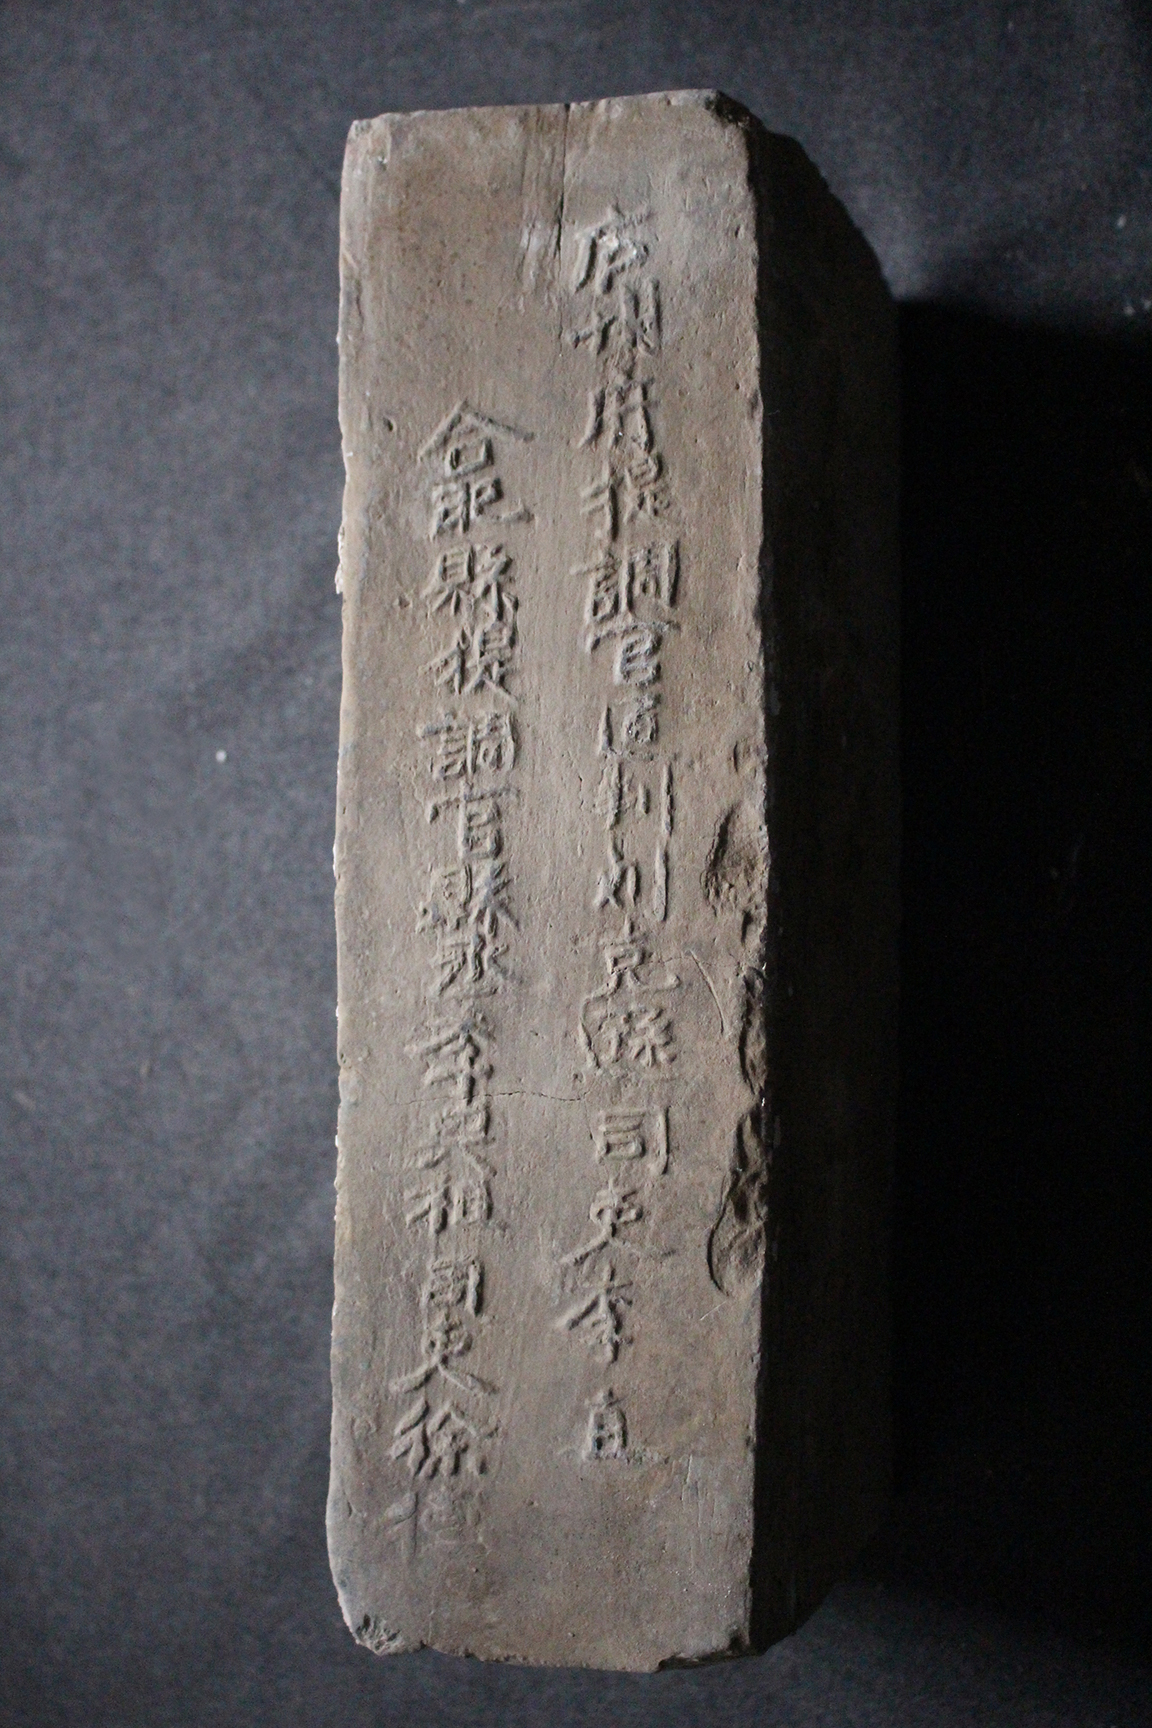 庐州府提調官通判刘克孫司吏李直
合肥縣提調官縣丞李興祖司吏徐